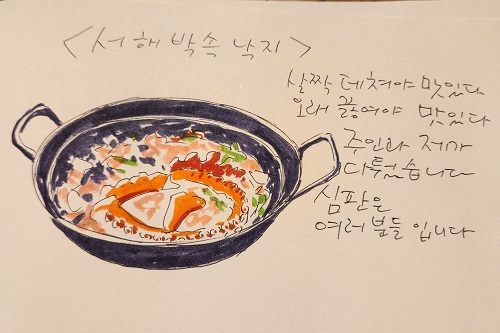 <서해박속낙지>
살짝 데쳐야 맛있다
오래 끓여야 맛있다
주인과 저가
다퉜습니다
심판은
여러분들입니다